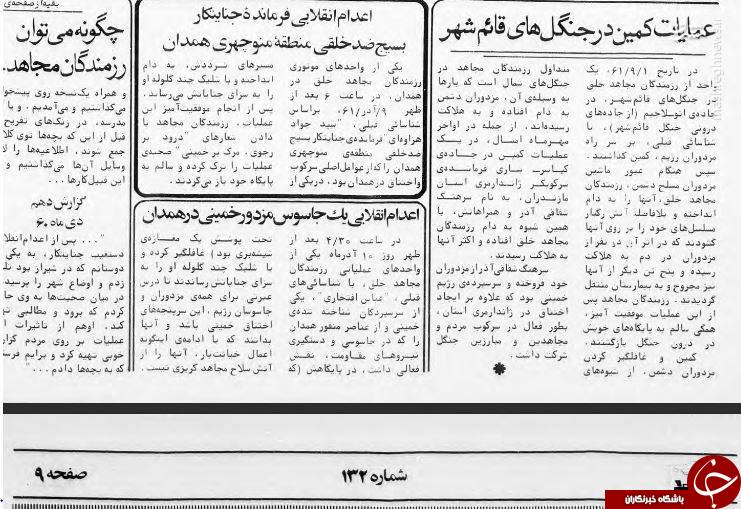 عملیات کمین در جنگل‌های قائم شهر
در تاریخ ۶۱/۹/۱، یک
واحد از رزمندگان مجاهد خلق
در جنگلهای قائم‌شهر، در
جاده‌ی اتوسلاجیم (از جاده‌های
درونی جنگل قائم‌شهر)، با
شناسائی قبلی، بر سر راه
مزدوران رژیم، کمین گذاشتند.
سپس هنگام عبور ماشین
مزدوران مسلح دشمن، رزمندگان
مجاهد خلق، آنها را به دام
انداخته و بلافاصله آتش رگبار
مسلسل‌های خود را بر روی آنها
گشودند که در اثر آن دو نفر از
مزدوران در دم به هلاکت
رسیده و پنج تن دیگر از آنها
نیز مجروح و به بیمارستان منتقل
گردیدند. رزمندگان مجاهد پس
از این عملیات موفقیت آمیز،
همگی سالم به پایگاه‌های خویش
در درون جنگل بازگشتند.
کمین و غافلگیر کردن
مزدوران دشمن، از شیوه‌های
متداول رزمندگان مجاهد در
جنگل‌های شمال است که بارها
به وسیله‌ی آن، مزدوران دشمن
به دام افتاده و به هلاکت
رسیده‌اند. از جمله در اواخر
مهرماه امسال، در یک
عملیات کمین در جاده‌ی
کیاسر ساری فرمانده‌ی
سرکوبگر ژاندارمری استان
مازندران، به نام سرهنگ
شقاقی آذر و همراهانش، با
همین شیوه به دام رزمندگان
مجاهد خلق افتاده و اکثر آنها
به هلاکت رسیدند.
سرهنگ شقاقی آذر از مزدوران
خود فروخته و سرسپرده‌ی رژیم
خمینی بود که علاوه بر ایجاد
اختناق در ژاندارمری استان،
بطور فعال در سرکوب مردم و
مجاهدین و مبارزین جنگل
شرکت داشت.
اعدام انقلابی فرماندهٔ جنایتکار
بسیج ضد خلقی منطقهٔ منوچهری همدان
یکی از واحدهای موتوری
رزمندگان مجاهد خلق در
همدان، در ساعت ۶ بعد از
ظهر ۹/آذر/۶۱، براساس
شناسائی قبلی، "سید جواد
هراوه‌ای" فرمانده‌ی جنایتکار بسیج
ضدخلقی منطقه‌ی منوچهری
همدان را که از عوامل اصلی سرکوب
و اختناق در همدان بود، در یکی از
مسیرهای ترددش، به دام
انداخته و با شلیک چند گلوله او
را به سزای جنایاتش می‌رساند.
پس از انجام موفقیت‌آمیز این
عملیات، رزمندگان مجاهد با
دادن شعارهای "درود بر
رجوی، مرگ بر خمینی" صحنه‌ی
عملیات را ترک کرده و سالم به
پایگاه خود باز می‌گردند.
اعدام انقلابی یک جاسوس مزدور خمینی در همدان
در ساعت ۴/۳۰ بعد از
ظهر روز ۱۰ آذرماه یکی از
واحدهای عملیاتی رزمندگان
مجاهد خلق، با شناسائی‌های
قبلی، "عباس افتخاری"، یکی
از سرسپردگان شناخته شده‌ی
خمینی و از عناصر منفور همدان
را که در جاسوسی و دستگیری
نیروهای مقاومت، نقش
فعالی داشت، در پایگاهش (که
تحت پوشش یک مغازه‌ی
شیشه‌بری بود) غافلگیر کرده و
با شلیک چند گلوله او را به
سزای جنایاتش رساندند تا درس
عبرتی برای همه‌ی مزدوران و
جاسوسان رژیم، این سرپنجه‌های
اختناق خمینی باشد و آنها
بدانند که با ادامه‌ی اینگونه
اعمال خیانت‌بار، آنها را از
آتش سلاح مجاهد گریزی نیست.
بقیه از صفحه‌ی
چگونه می‌توان
رزمندگان مجاهد
و همراه یک نسخه روی پیسخوا
می‌گذاشتیم و می‌آمدیم. و یا
مدرسه، در زنگ‌های تفریح
قبل از این که بچه‌ها توی کلا
جمع شوند، اطلاعیه‌ها را لا
وسایل آن‌ها می‌گذاشتیم و
این قبیل کارها..."
گزارش دهم
دی ماه ۶۰
"... پس از اعدام انقلا
دستغیب جنایتکار، به یکی
دوستانم که در شیراز بود تلف
زدم و اوضاع شهر را پرسید
در میان صحبت‌ها به وی حا
کردم که برود و مطالبی ت
کند. او هم از تاثیرات ا
عملیات بر روی مردم گزار
خوبی تهیه کرد و برایم فرست
که به بچه‌ها دادم..."
شماره ۱۳۲
صفحه ۹
باشگاه خبرنگاران